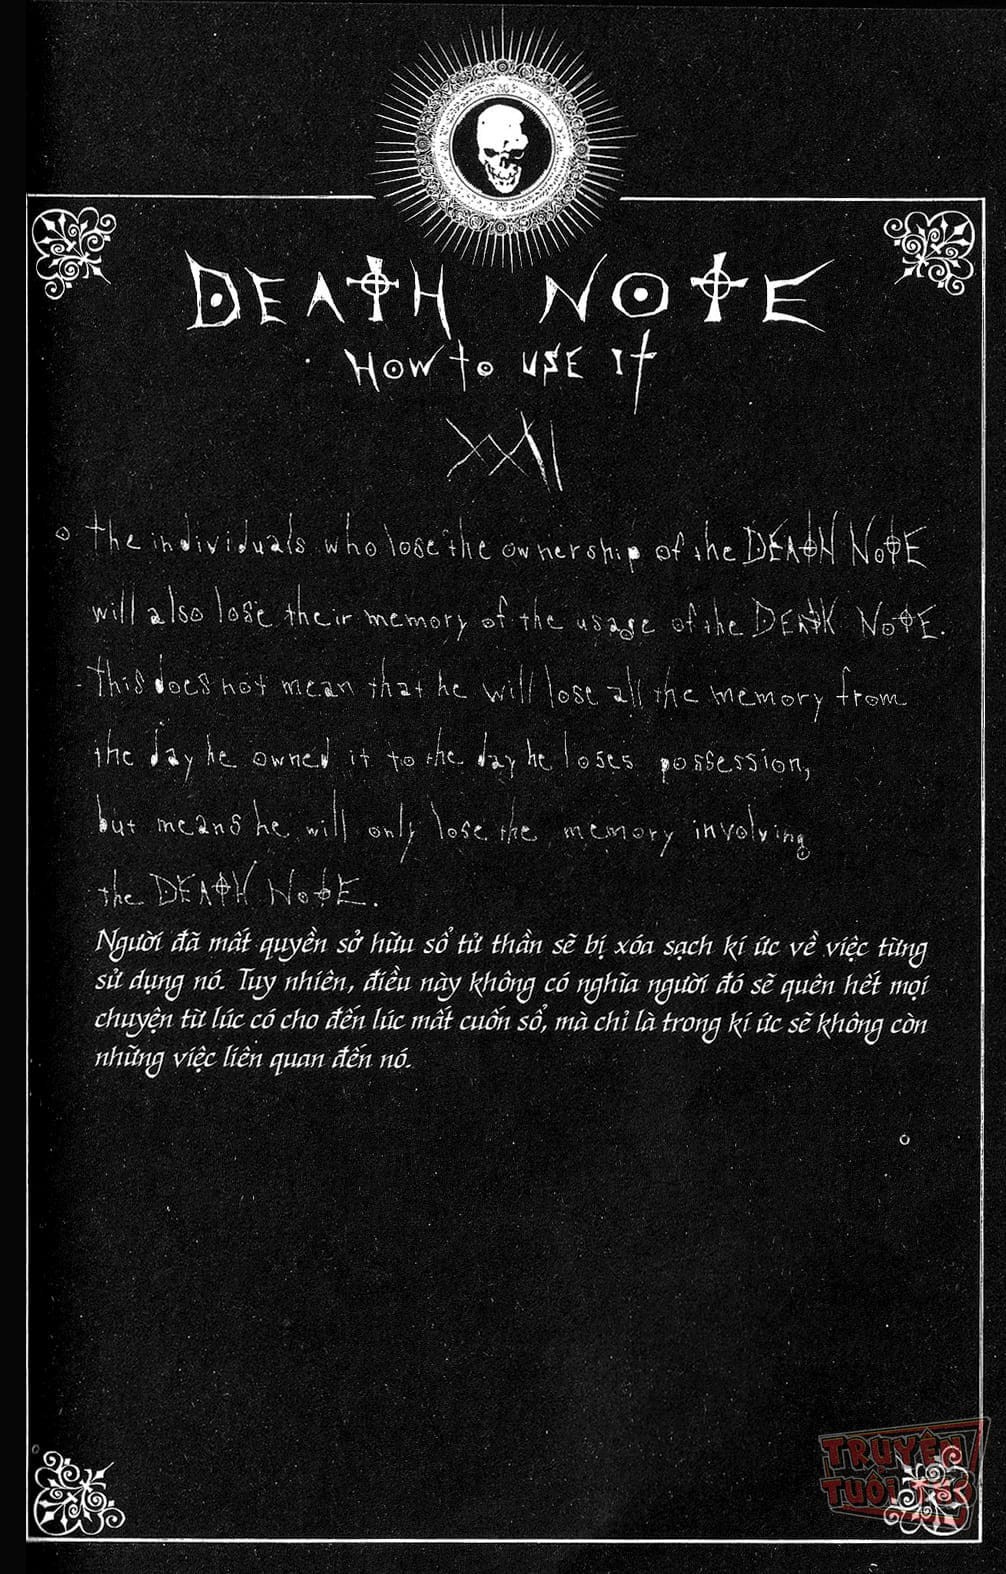 DEATH NOTE
HOW to USE It
XXII
the individuals who lose the ownership of the DEATH NOTE
will also lose their memory of the usage of the DEATH NOTE.
This does not mean that he will lose all the memory from
the day he owned it to the day he loses possession,
but means he will only lose the memory involving
the DEATH NOTE.
Người đã mất quyền sở hữu sổ tử thần sẽ bị xóa sạch kí ức về việc từng
sử dụng nó. Tuy nhiên, điều này không có nghĩa người đó sẽ quên hết mọi
chuyện từ lúc có cho đến lúc mất cuốn sổ, mà chỉ là trong kí ức sẽ không còn
những việc liên quan đến nó.
TRUYỆN
TUỔI THƠ